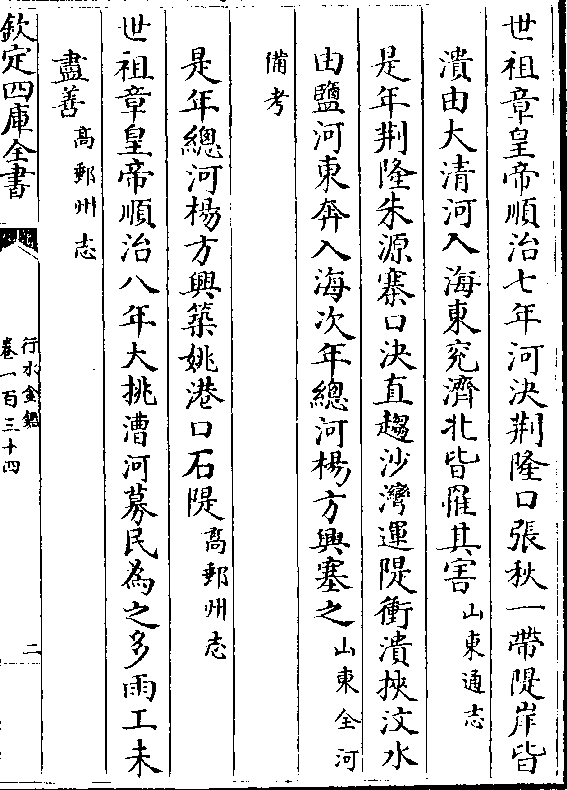 世祖章皇帝順治七年河決荆隆口張秋一帶隄岸皆
潰由大清河入海東兖濟北皆罹其害山東通志
是年荆隆朱源寨口決直趨沙灣運隄衝潰挾汶水
由鹽河東奔入海次年總河楊方興塞之山東全河
備考
是年總河楊方興築姚港口石隄高郵州志
世祖章皇帝順治八年大挑漕河募民為之多雨工未
盡善高郵州志
欽定四庫全書
行水金鑑
卷一百三十四
二